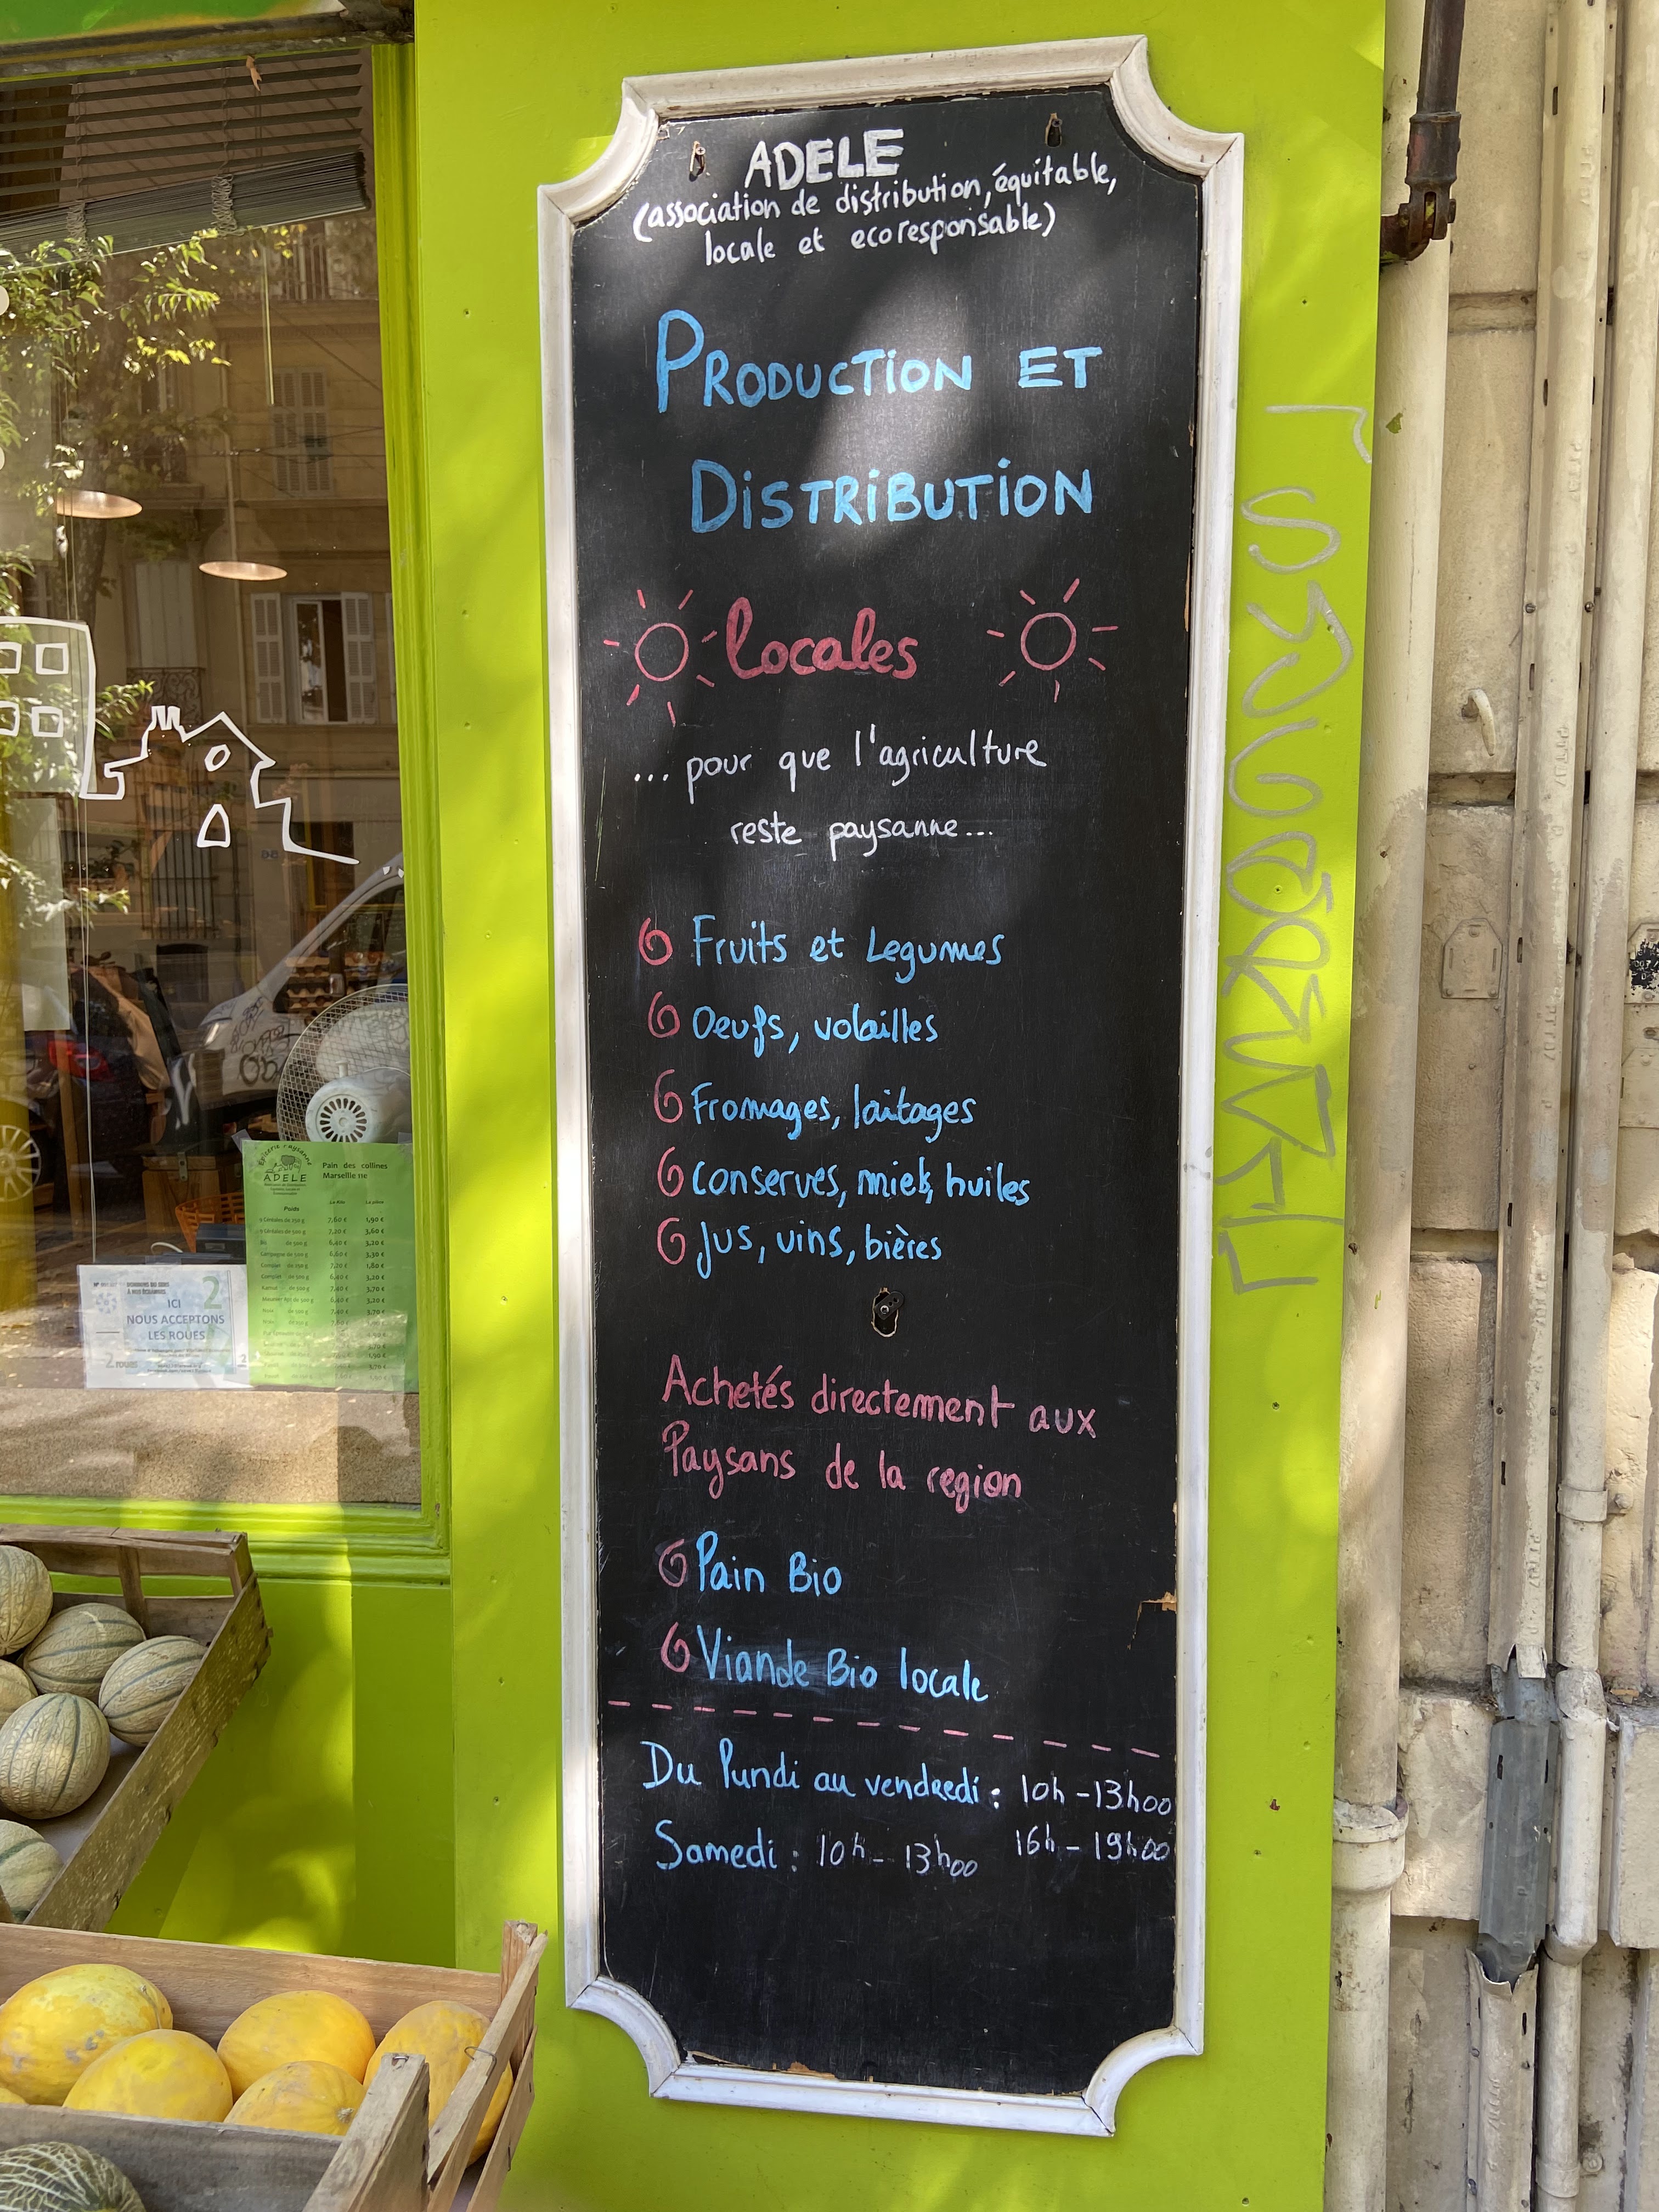 ADELE
(association de distribution, équitable,
locale et ecoresponsable)
PRODUCTION ET
DISTRIBUTION
locales
... pour que l'agriculture
reste paysanne...
Fruits et Legumes
Oeufs, volailles
Fromages, laitages
conserves, miels, huiles
Jus, vins, bières
Achetés directement aux
Paysans de la region
Pain Bio
Viande Bio locale
Du lundi au vendredi : 10h - 13h00
16h - 19h00
Samedi : 10h - 13h00
ADELE
Pain des collines
Marseille 11e
Poids
ICI
NOUS ACCEPTONS
LES ROUES
2